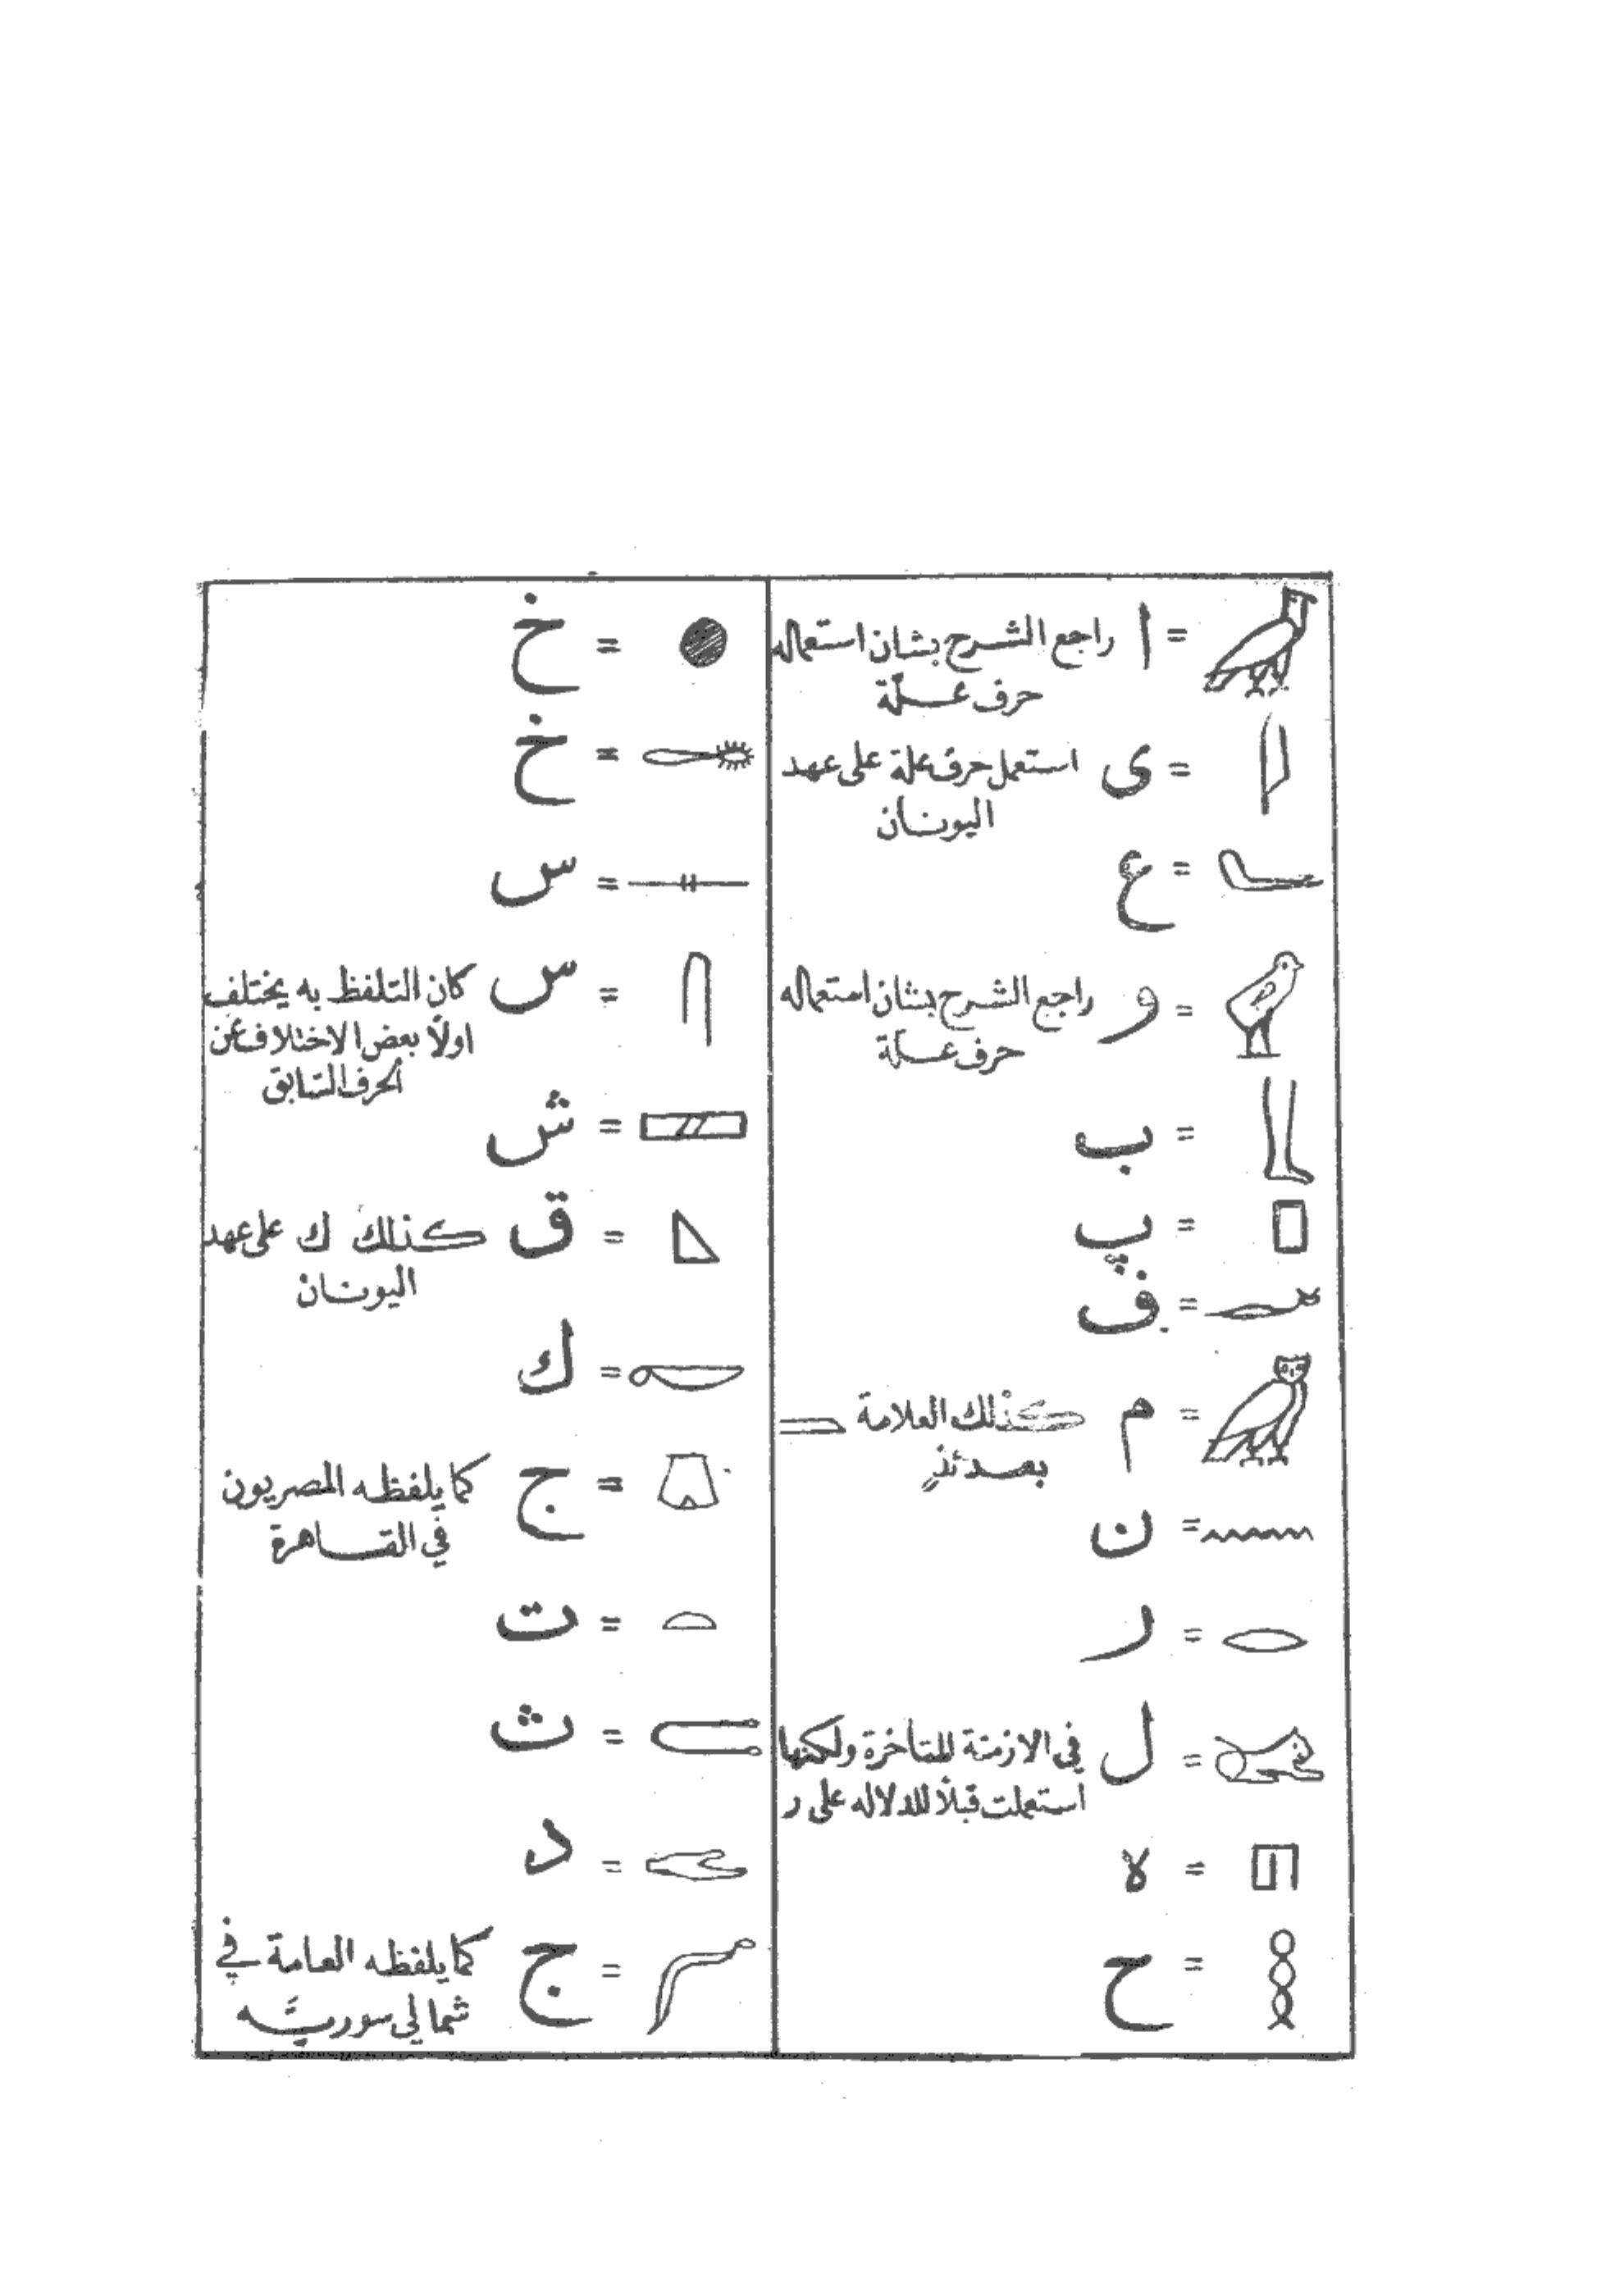 = ا راجع الشرح بشان استعماله
حرف علّة
= ى استعمل حرف علة على عهد
اليونان
= ع
= و راجع الشرح بشان استعماله
حرف علّة
= ب
= پ
= ف
= م كذلك العلامة
بعدئذٍ
= ن
= ر
= ل فى الازمنة المتأخرة ولكنها
استعملت قبلاً للدلاله على ر
= ﻻ
= ح
= خ
= خ
= س
= س كان التلفظ به يختلف
اولاً بعض الاختلاف عن
الحرف السّابق
= ش
= ق كذلك ك على عهد
اليونان
= ك
= ج كما يلفظه المصريون
في القاهرة
= ت
= ث
= د
= ج كما يلفظه العامة في
شمالي سوريّه